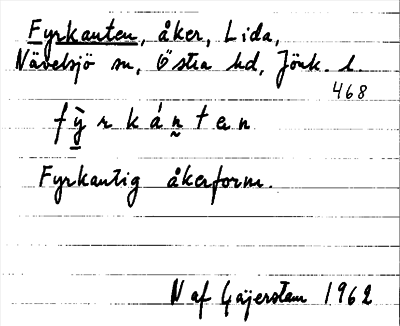 Fyrkanten, åker, Lida,
Nävelsjö sn, Östra hd, Jönk. l.
468
fỳ̖rkán̰ten
Fyrkantig åkerform.
N af Geijerstam 1962